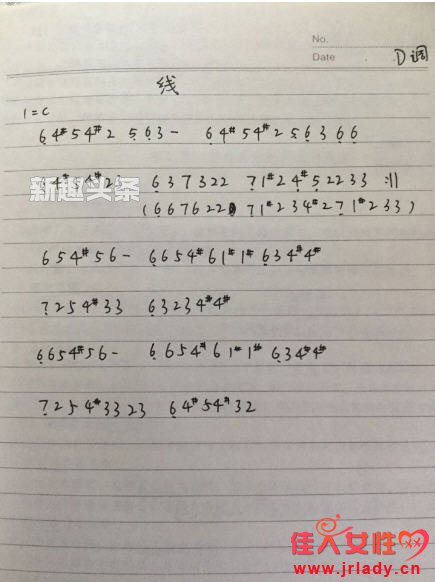 No.
Date D调
线
1=C
64#54#2 563- 64#54#256366
4#54#23 637322 71#24#52233 :||
(667622 71#234#271#233)
新趣头条
654#56- 6654#61#1#634#4#
7254#33 63234#4#
6654#56- 6654#61#1#634#4#
7254#3323 64#54#32
佳人女性
www.jrlady.cn